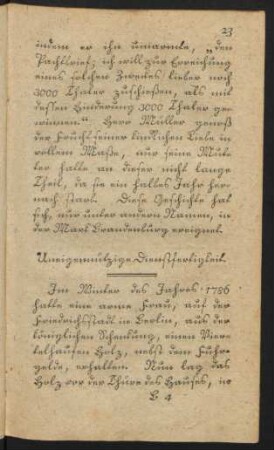 23
indem er ihn umarmte, „den
Pachtbrief; ich will zur Erreichung
eines solchen Zweckes lieber noch
3000 Thaler zuschießen, als mit
dessen Hinderung 3000 Thaler ge-
winnen.“ Herr Müller genoß
der Frucht seiner kindlichen Liebe in
vollem Maße, nur seine Mut-
ter hatte an dieser nicht lange
Theil, da sie ein halbes Jahr her-
nach starb. Diese Geschichte hat
sich, nur unter andern Namen, in
der Mark Brandenburg ereignet.
Uneigennützige Dienstfertigkeit.
Im Winter des Jahres 1786
hatte eine arme Frau, auf der
Friedrichsstadt in Berlin, aus der
königlichen Schenkung, einen Vier-
telhaufen Holz, nebst dem Fuhr-
gelde, erhalten. Nun lag das
Holz vor der Thüre des Hauses, in
B 4